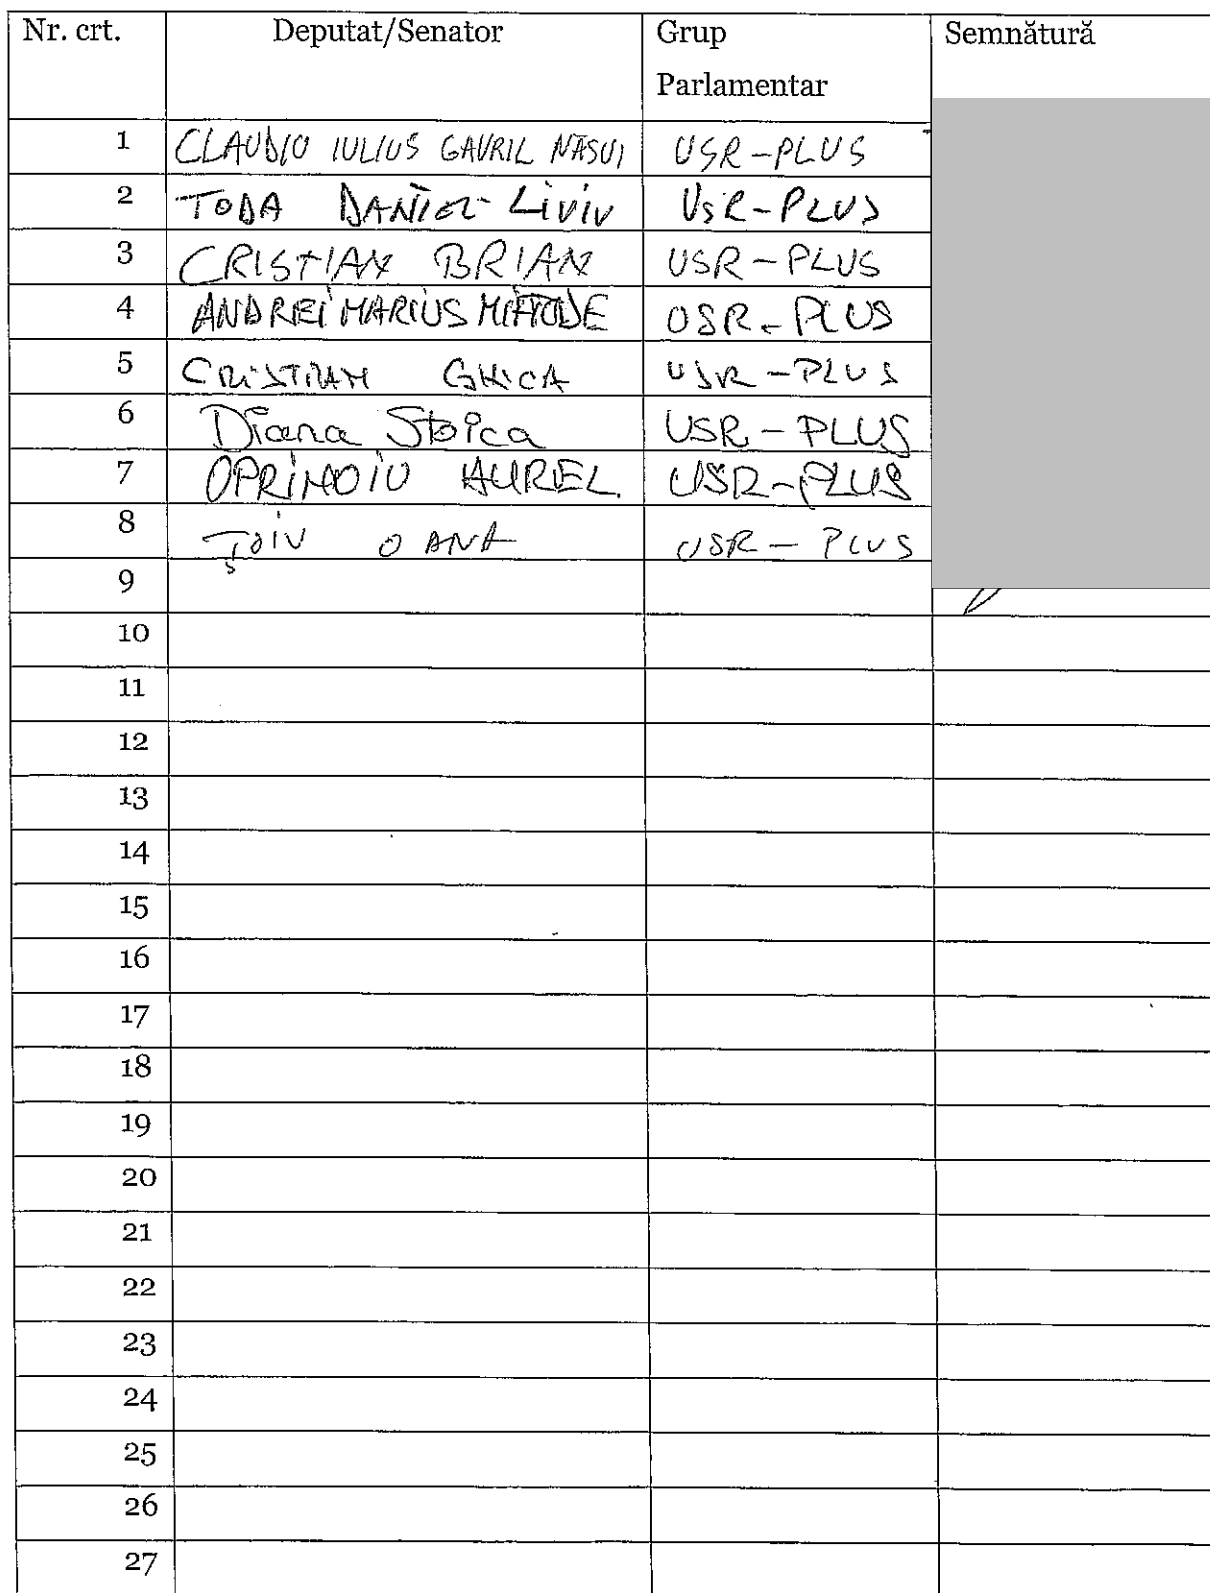 Nr. crt. Deputat/Senator Grup Parlamentar Semnătură
1 CLAUDIU IULIUS GAVRIL NĂSUI USR-PLUS
2 TODA DANIEL-LIVIU USR-PLUS
3 CRISTIAN BRIAN USR-PLUS
4 ANDREI MARIUS MIFTODE USR-PLUS
5 CRISTIAN GHICA USR-PLUS
6 Diana Stoica USR-PLUS
7 OPRINOIU AUREL USR-PLUS
8 ȚOIU OANA USR-PLUS
9
10
11
12
13
14
15
16
17
18
19
20
21
22
23
24
25
26
27